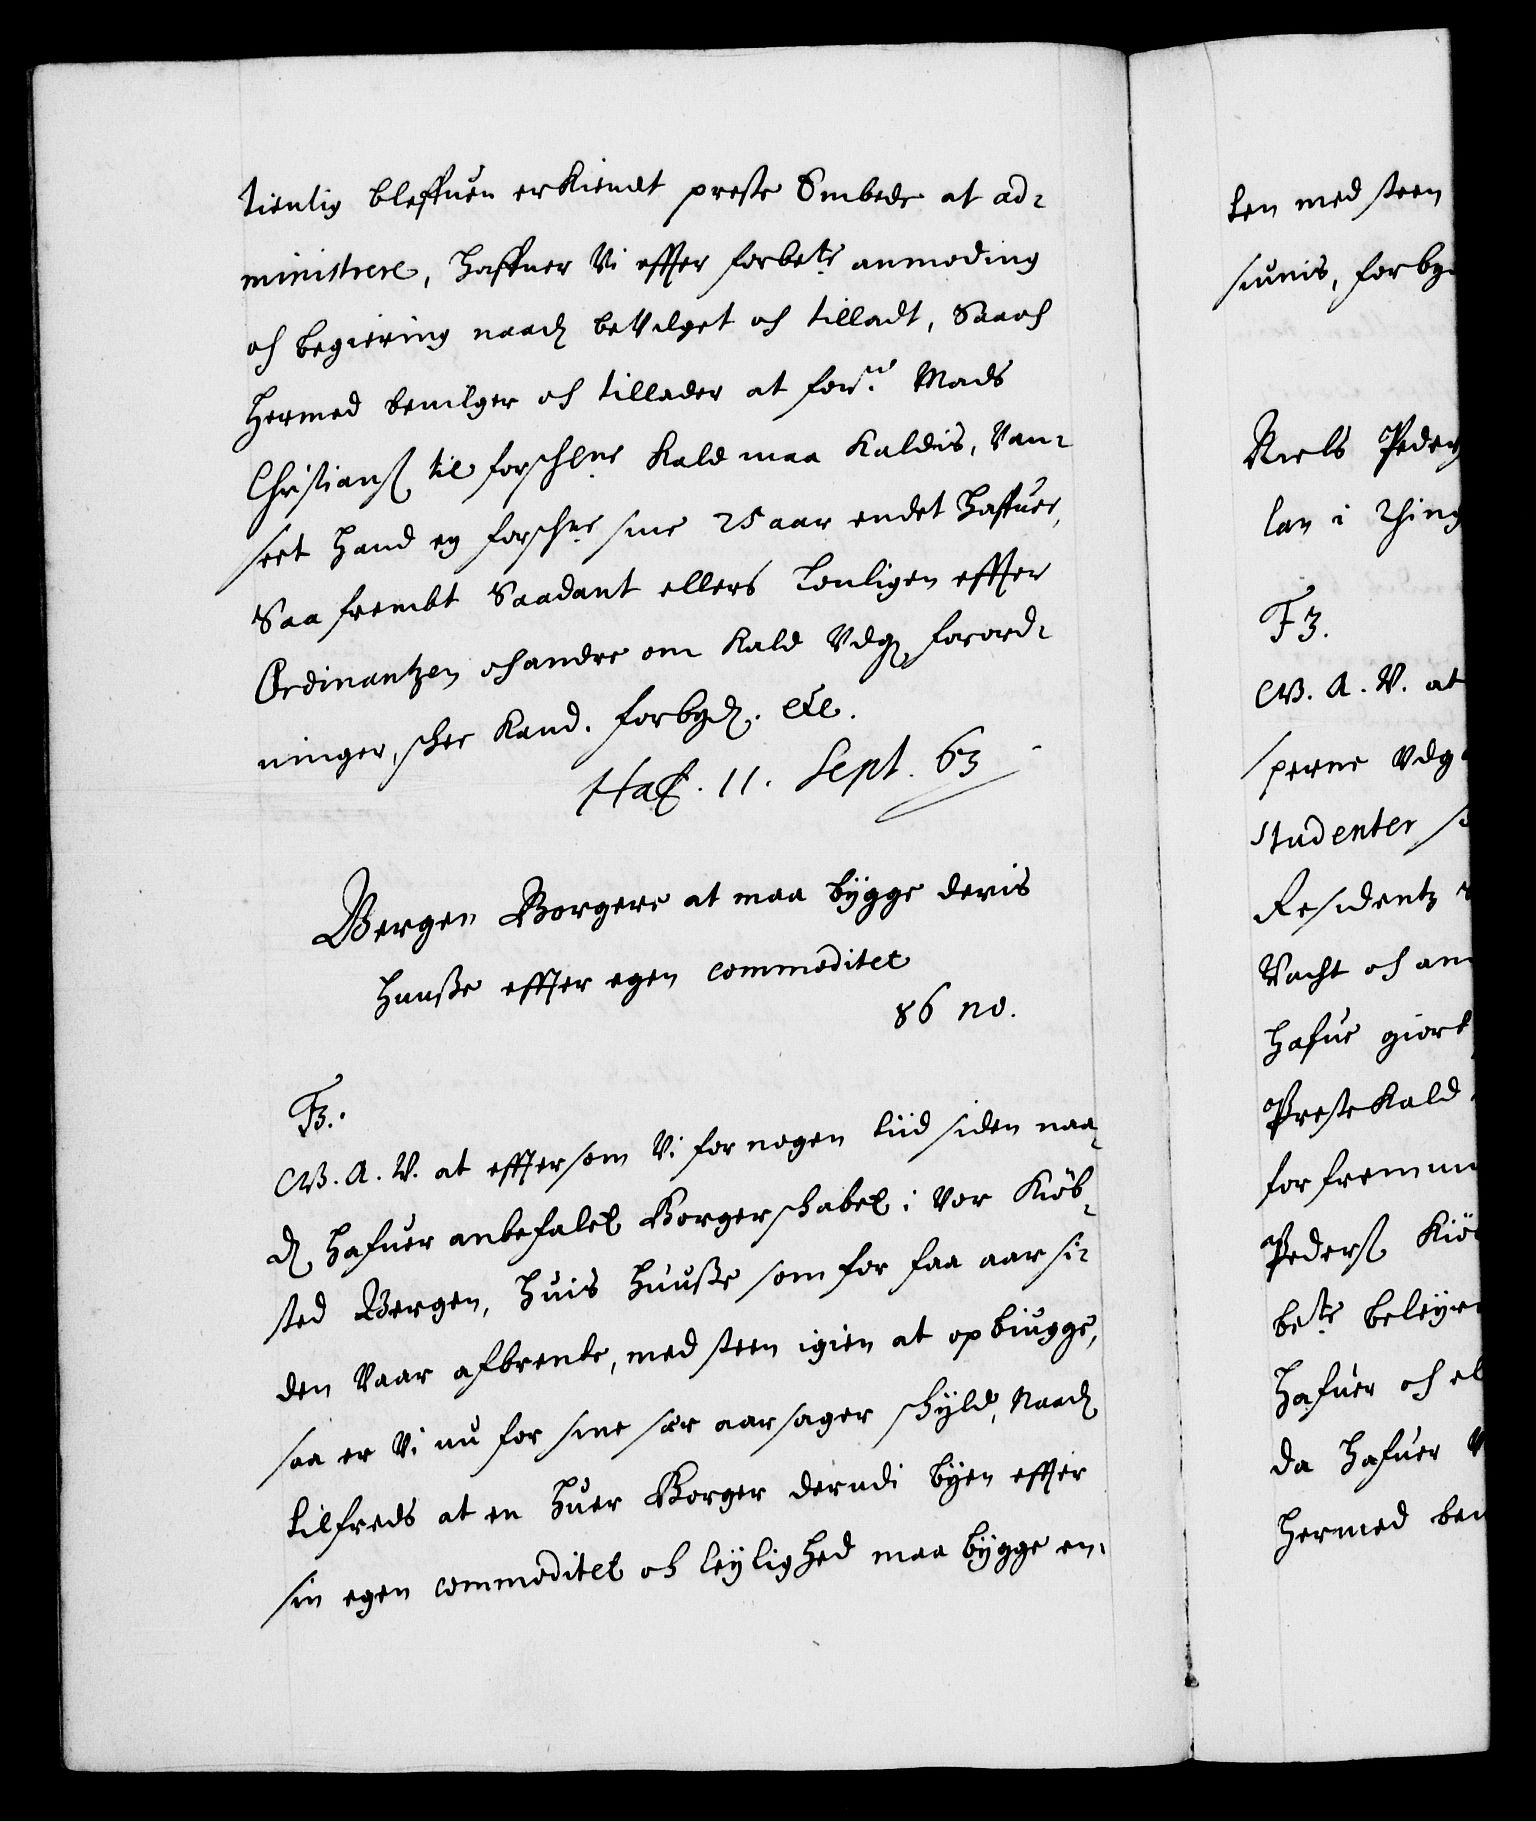 tienlig bleffuen erkiendt preste Embede at ad-
ministrere, haffuer Vi effter forbete anmoding
och begiering naadh beVilget och tilladt, Saa och
hermed beuilger och tillader at forne Mads
Christiansß til forschrne Kald maa Kaldis, Uan-
seet hand ey forschne sine 25 aar endet haffuer,
Saa frembt Saadant ellers Louligen effter
Ordinantzen och andre om Kald Udg forord-
ninger, schee Kand. forbydh. etc.
Haf. 11. Sept. 63
Bergen Borgere at maa bÿgge deris
huusße effter egen commoditet
86 no.
F3.
G.A.V. at effter som Vi for nogen tiid siden naa-
dh hafuer anbefalet Borgerschabet i Vor Kiöb-
sted Bergen, huis huusße som for faa aar si-
den Vaar afbrente, med steen igien at opbiugge,
saa er Vi nu for sine sær aarsager schÿld, Naadh
tilfreds at en huer Borger derudi bÿen effter
sin egen commoditet och leÿlighed maa bÿgge en-
ten med steen
siunis, forby
Niels Peder
lan i Thing
F3.
G.A.V. at
sperne Udg
Studenter s
Residentz
Vacht och an
hafue giort
Preste Kald
for fremm
Pedersß Kiö
bete beleÿr
hafuer och el
da hafuer V
hermed beu